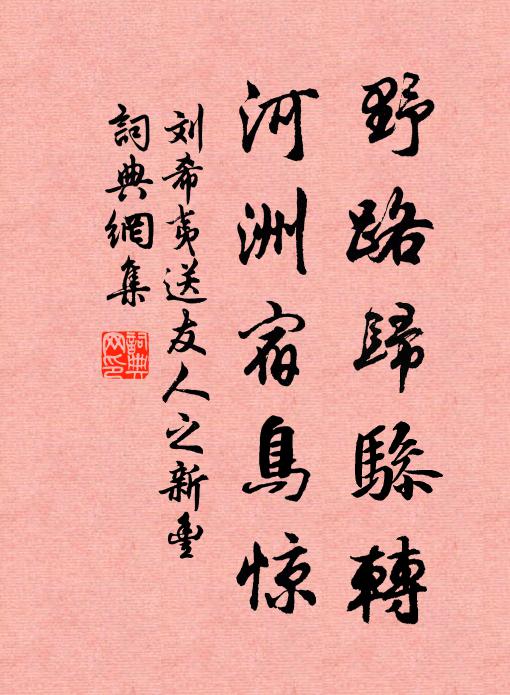 野路歸驂轉
河洲宿鳥惊
刘希夷送友人之新豐
詞典網集
詞典网印